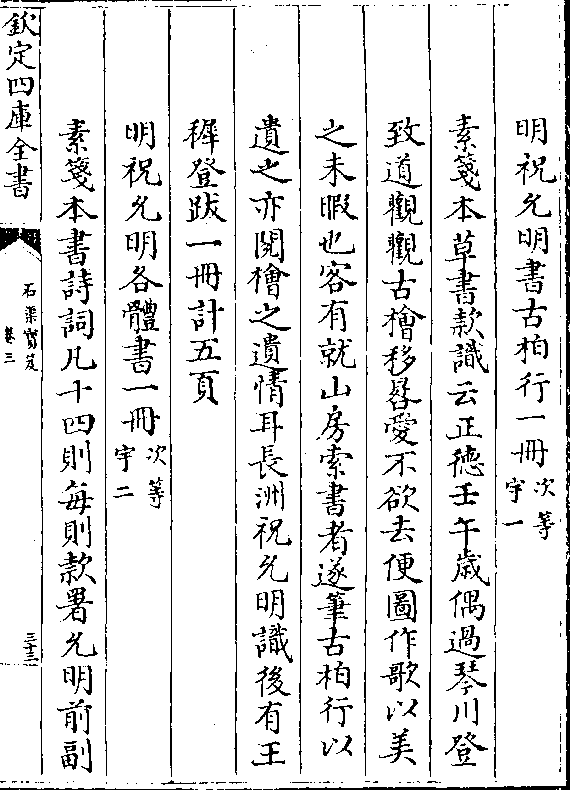 明祝允明書古柏行一冊次等宇一
素箋本草書款識云正德壬午歲偶過琴川登
致道觀觀古檜移晷愛不欲去便圖作歌以美
之未暇也客有就山房索書者遂筆古柏行以
遺之亦閱檜之遺情耳長洲祝允明識後有王
穉登跋一冊計五頁
明祝允明各體書一冊次等宇二
素箋本書詩詞凡十四則每則款署允明前副
欽定四庫全書
石渠寳笈
卷三
三十三